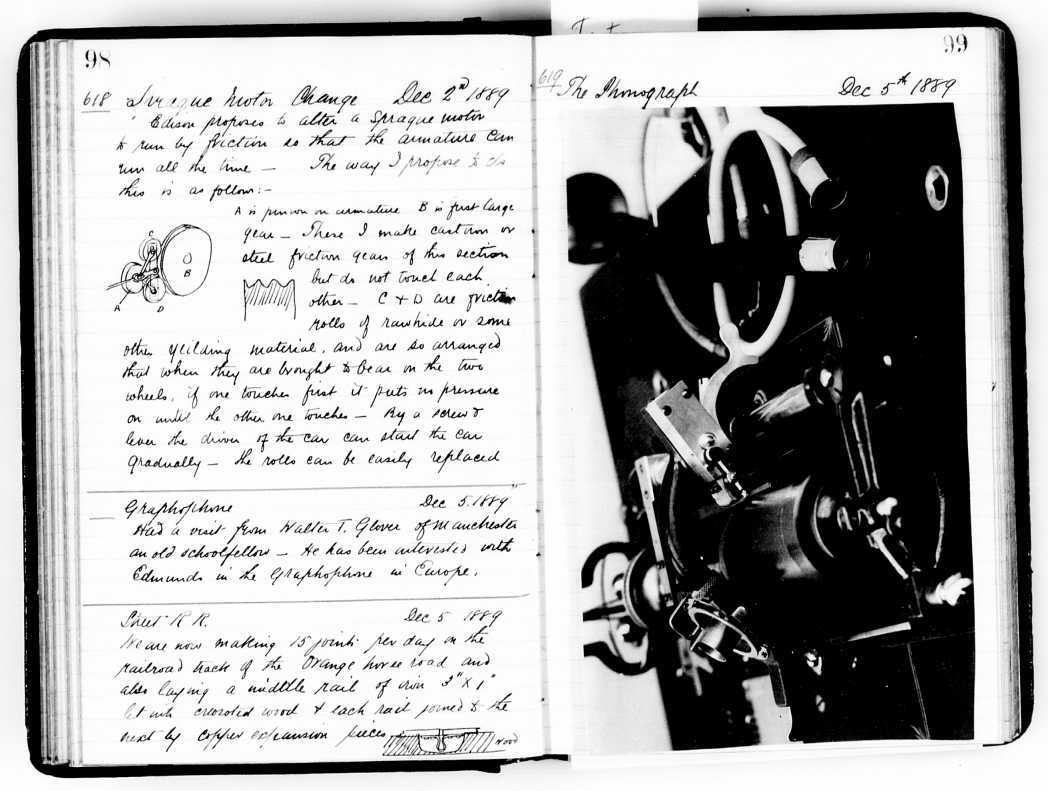 98
618 Sprague Motor Change Dec 2nd 1889
Edison proposes to alter a Sprague motor
to run by friction so that the armature can
run all the time — The way I propose to do
this is as follows:-
A is pinion on armature B is first large
gear — These I make cast iron or
steel friction gears of this section
but do not touch each
other — C + D are friction
rolls of rawhide or some
other yeilding material, and are so arranged
that when they are brought to bear on the two
wheels, if one touches first it puts no pressure
on until the other one touches — By a screw &
lever the driver of the car can start the car
gradually — the rolls can be easily replaced
C
B
A
D
Graphophone Dec 5. 1889
Had a visit from Walter T. Glover of Manchester
an old schoolfellow — He has been interested with
Edmunds in the Graphophone in Europe.
Street R.R. Dec 5 1889
We are now making 15 joints per day on the
railroad track of the Orange horse road and
also laying a middle rail of iron 3" x 1"
let into creosoted wood & each rail joined to the
next by copper expansion pieces
wood
99
619 The Phonograph Dec 5th 1889